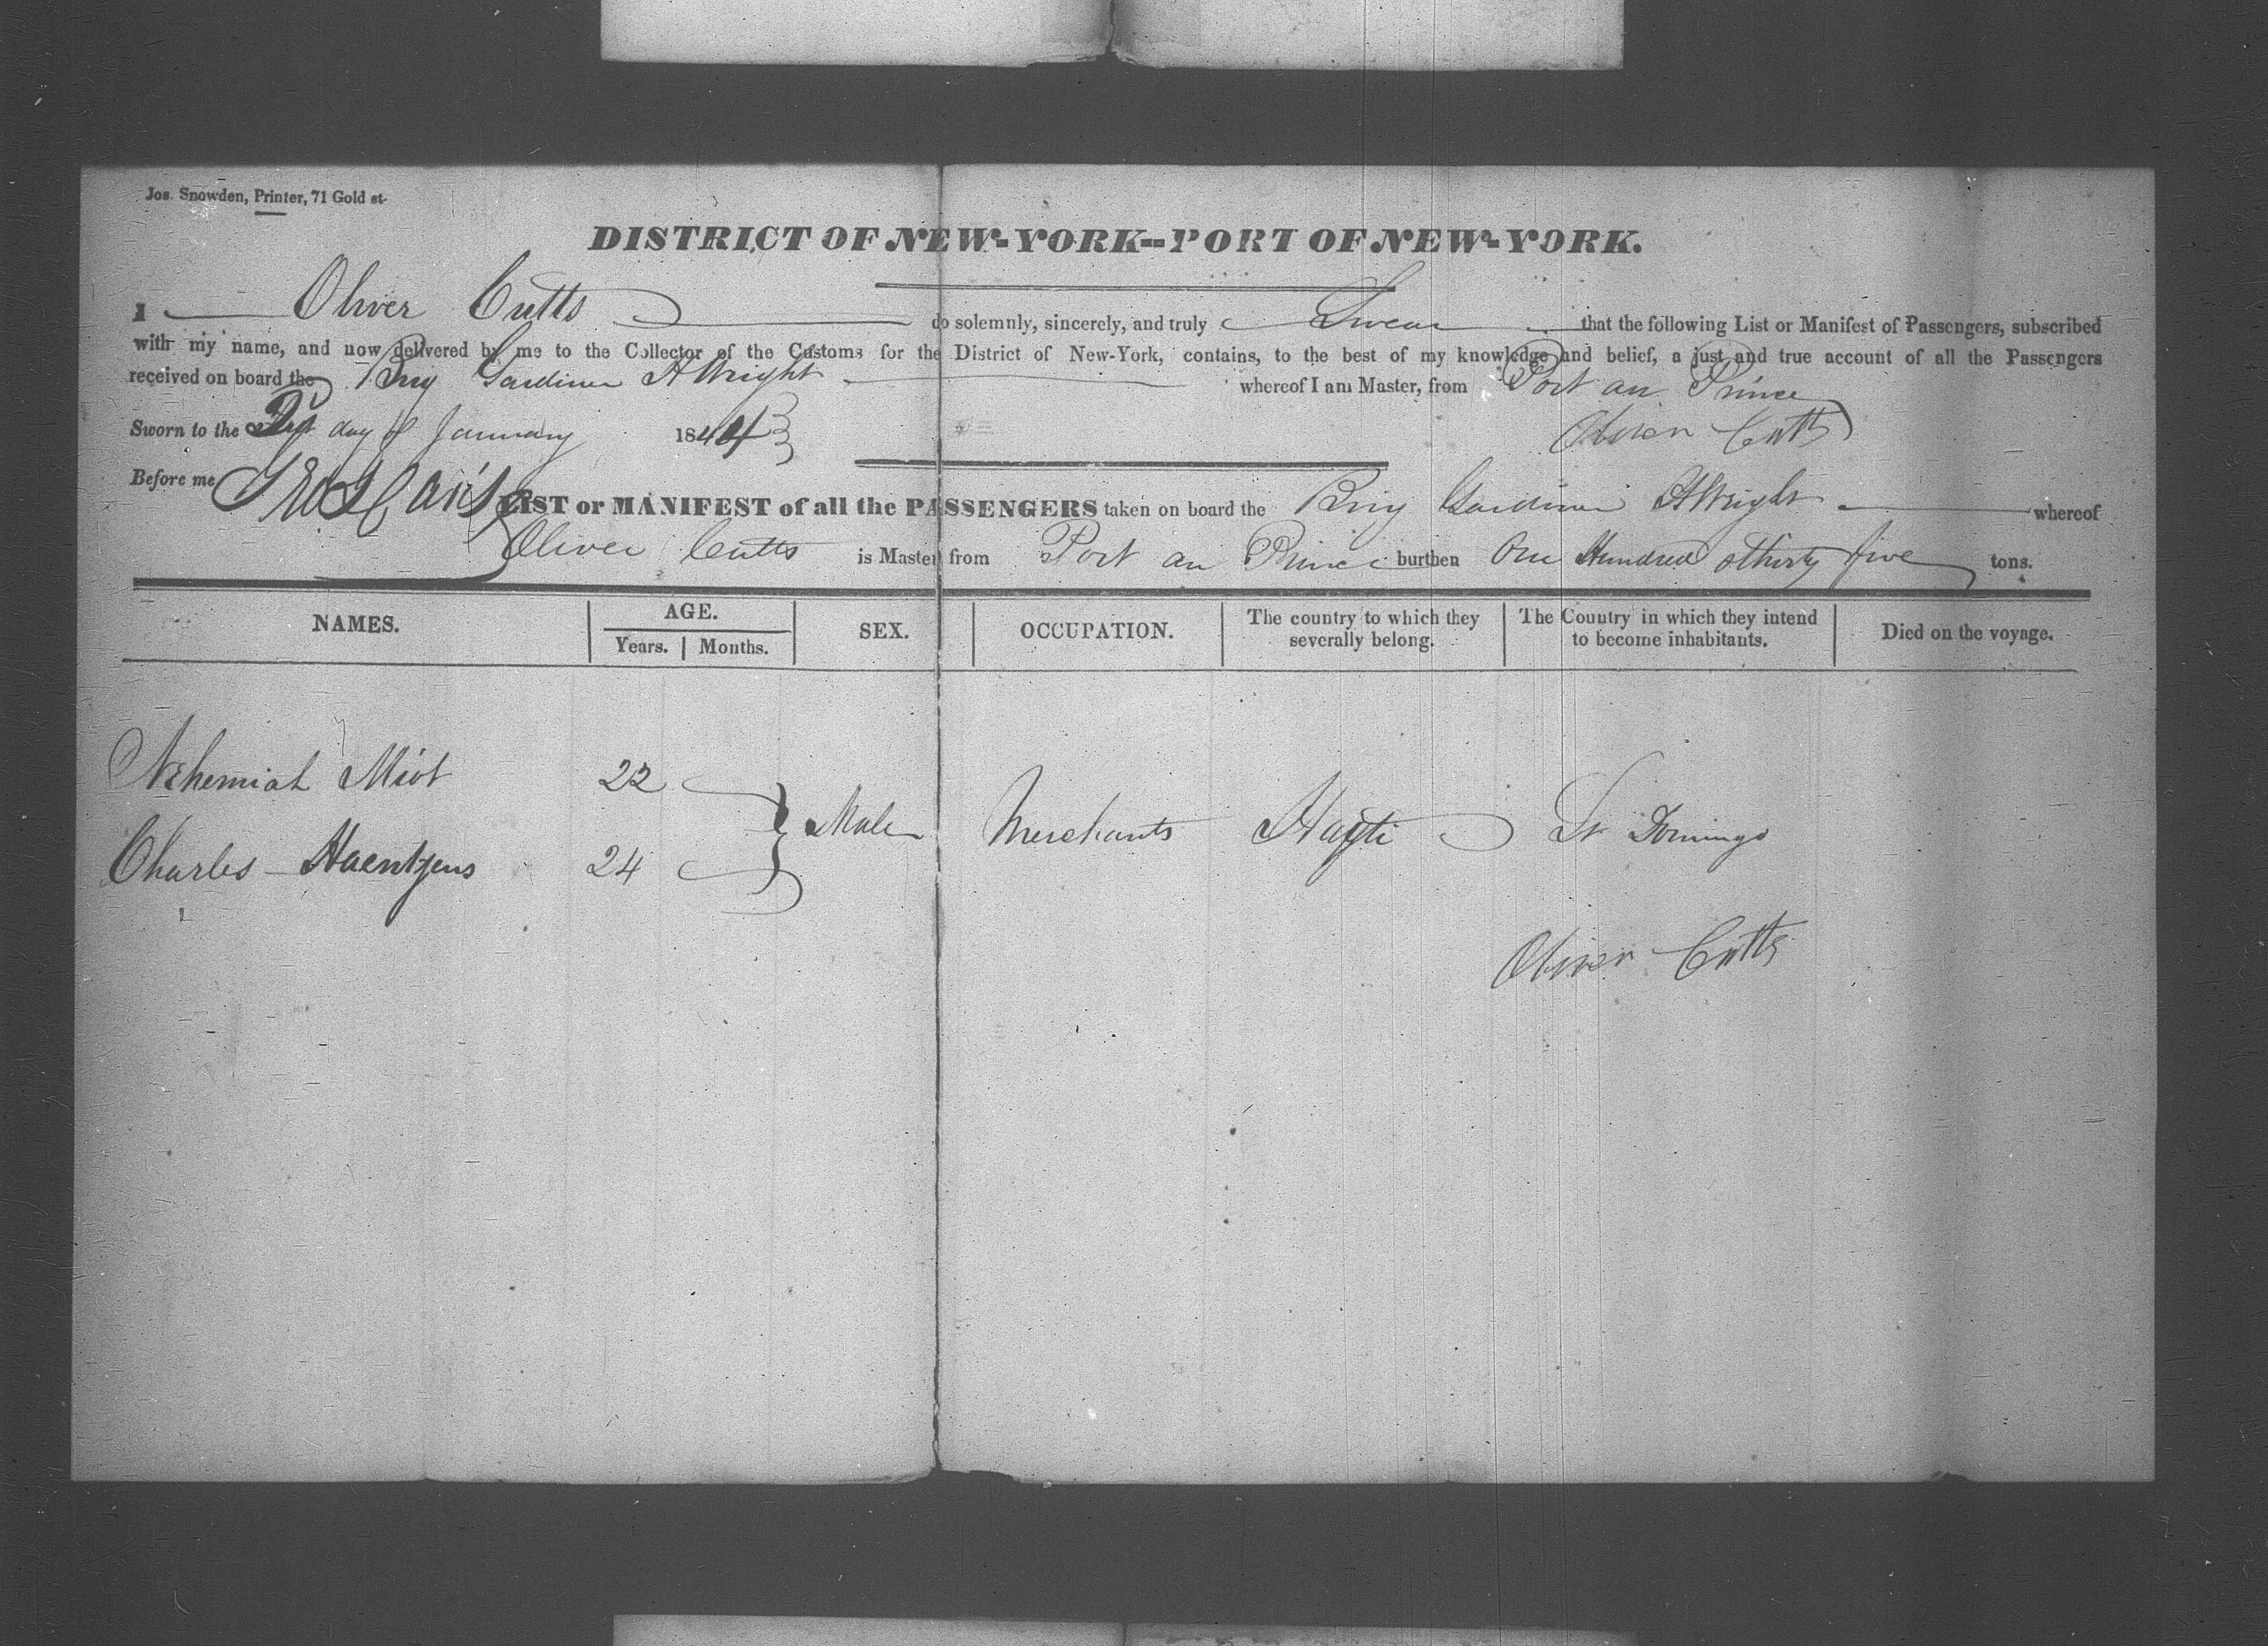 Jos. Snowden, Printer, 71 Gold st.
DISTRICT OF NEW-YORK--PORT OF NEW-YORK.
I Oliver Cutts do solemnly, sincerely, and truly Swear that the following List or Manifest of Passengers, subscribed
with my name, and now delivered by me to the Collector of the Customs for the District of New-York, contains, to the best of my knowledge and belief, a just and true account of all the Passengers
received on board the Brig Gardiner H Wright whereof I am Master, from Port au Prince
Sworn to the day of January 1844 Oliver Cutts
Before me
LIST or MANIFEST of all the PASSENGERS taken on board the Brig Gardiner H Wright whereof
Oliver Cutts is Master, from Port au Prince burthen One Hundred & thirty five tons.
NAMES. AGE. SEX. OCCUPATION. The country to which they severally belong. The Country in which they intend to become inhabitants. Died on the voyage.
Years. Months.
Nehemiah Miot 22
Male Merchants Hayti St Domingo
Charles Haentjens 24
Oliver Cutts